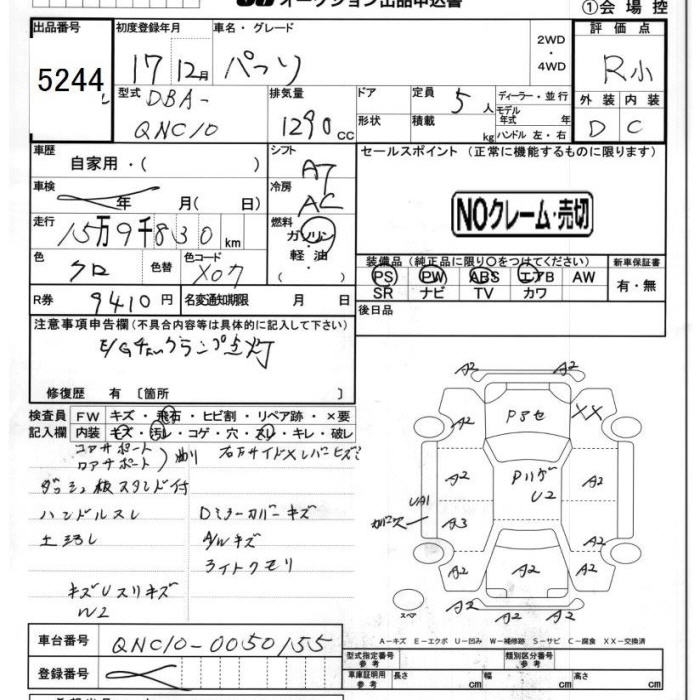 オークション出品申込書
①会場控
出品番号 初度登録年月 車名・グレード 評価点
5244 17 12月 パッソ 2WD・4WD R小
型式 DBA-QNC10 排気量 1290cc
ドア 形状 定員 5人 積載 kg
ディーラー・並行 モデル年式 年 ハンドル 左・右
外装 内装
D C
車歴 自家用・( )
シフト AT
セールスポイント(正常に機能するものに限ります)
車検 年 月(日)
冷房 AC
NOクレーム・売切
走行 15万9千830km
燃料 ガソリン・軽油( )
装備品(純正品に限り○をつけてください) 新車保証書
色 クロ 色替 色コード X07
PS PW ABS エアB AW 有・無
SR ナビ TV カワ
R券 9410円 名変通知期限 月 日
後日品
注意事項申告欄(不具合内容等は具体的に記入して下さい)
E/Gチェックランプ点灯
修復歴 有〔箇所 〕
検査員 FW キズ・飛石・ヒビ割・リペア跡・×要
記入欄 内装 キズ・汚レ・コゲ・穴・スレ・キレ・破レ
コアサポート
ロアサポート
ダッシュ板スタンド付
ハンドルスレ Dミラーカバーキズ
A/Wキズ
ライトクモリ
キズUスリキズ
W2
A2 A2
A2 XX
A2 U2 A2
UA1
A3 A2
A2 A2 A2
スペア
A2 A2 A2
A-キズ E-エクボ U-凹み W-補修跡 S-サビ C-腐食 XX-交換済
車台番号 QNC10-0050155
型式指定番号 参考 類別区分番号 参考
登録番号
車庫証明用 参考 長さ cm 幅 cm 高さ cm